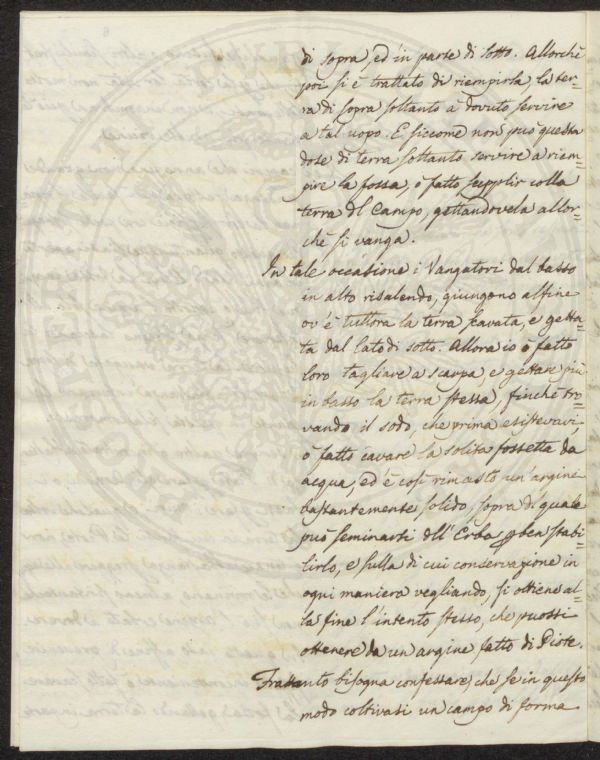 di sopra, ed in parte di sotto. Allorchè
poi si è trattato di riempirla, la ter=
ra di sopra soltanto à dovuto servire
a tal uopo. E siccome non può questa
dose di terra soltanto servire a riem=
pire la fossa, ò fatto supplir colla
terra del Campo, gettandovela allor=
chè si vanga.
In tale occasione i Vangatori dal basso
in alto risalendo, giungono alfine
ov'è tuttora la terra scavata, e getta=
ta dal lato di sotto. Allora io ò fatto
loro tagliare a scarpa, e gettare più
in basso la terra stessa, finchè tro=
vando il sodo, che prima esistevavi,
ò fatto cavare la solita fossetta da
acqua, ed è così rimasto un'argine
bastantemente solido, sopra di quale
può seminarsi dell'Erba per ben stabi=
lirlo, e sulla di cui conservazione in
ogni maniera vegliando, si ottiene al=
la fine l'intento stesso, che puossi
ottenere da un argine fatto di Piote.
Frattanto bisogna confessare, che se in questo
modo coltivasi un campo di forma